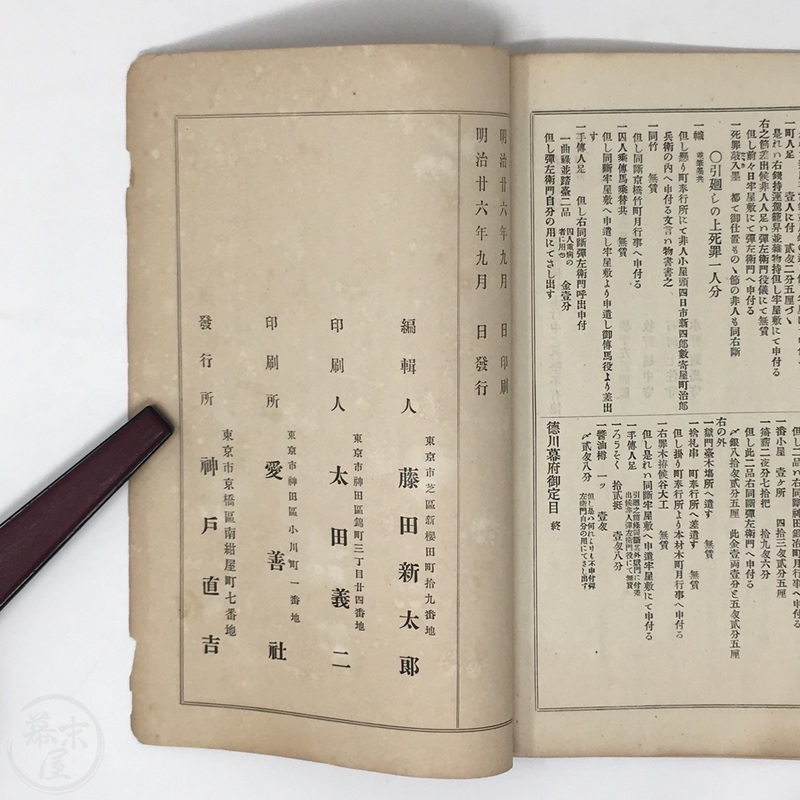 一町人足 壹人に付 貳匁二分五厘づゝ
是れハ右錢持運駕籠昇並雜物持但し牢屋敷へ申付る
右之節差出候非人人足ハ彈左衛門役儀にて無賃
但し前々日牢屋敷にて彈左衛門へ申付る
一死罪敲入墨 都て御仕置ものゝ節の非人も同右斷
〇引廻しの上死罪一人分
一幟
但し懸り町奉行所にて非人小屋頭四日市新四郎數寄屋町治郎
兵衛の内へ申付る文言ハ物書書之
一同竹 無賃
但し同斷京橋竹町月行事へ申付る
一囚人乘傳馬乘替共 無賃
但し同斷牢屋敷へ申遣し牢屋敷より申遣し御傳馬役より差出
す
一手傳人足 但し右同斷彈左衛門呼出申付
一曲祿並踏臺二品 囚人重病の者に用ゆ 金壹分
但し彈左衛門自分の用にてさし出す
但し二品右同斷神田鍛冶町月行事へ申付る
一番小屋 壹ケ所 四拾三匁五厘
一篝薪二夜分七拾把 拾九匁六分
但し此二品右同斷彈左衛門へ申付る
〆銀八拾匁貳分五厘 此金壹両壹分と五匁貳分五厘
右の外
一獄門臺木場所へ遣す 無賃
一捨札串 町奉行所へ差遣す 無賃
但し掛り町奉行所より本材木町月行事へ申付る
一右罪木拵候谷大工
但し是れハ同斷牢屋敷へ申遣牢屋敷にて申付る
一手傳人足
一ろうそく 拾貳挺 壹匁八分
一醬油樽 一ッ 壹匁
〆貳匁八分
德川幕府御定目 終
明治廿六年九月 日印刷
明治廿六年九月 日發行
編輯人 東京市芝區新櫻田町拾九番地 藤田新太郞
印刷人 東京市神田區錦町三丁目廿四番地 太田義二
印刷所 東京市神田區小川町一番地 愛善社
發行所 東京市京橋區南紺屋町七番地 神戸直吉
幕末屋